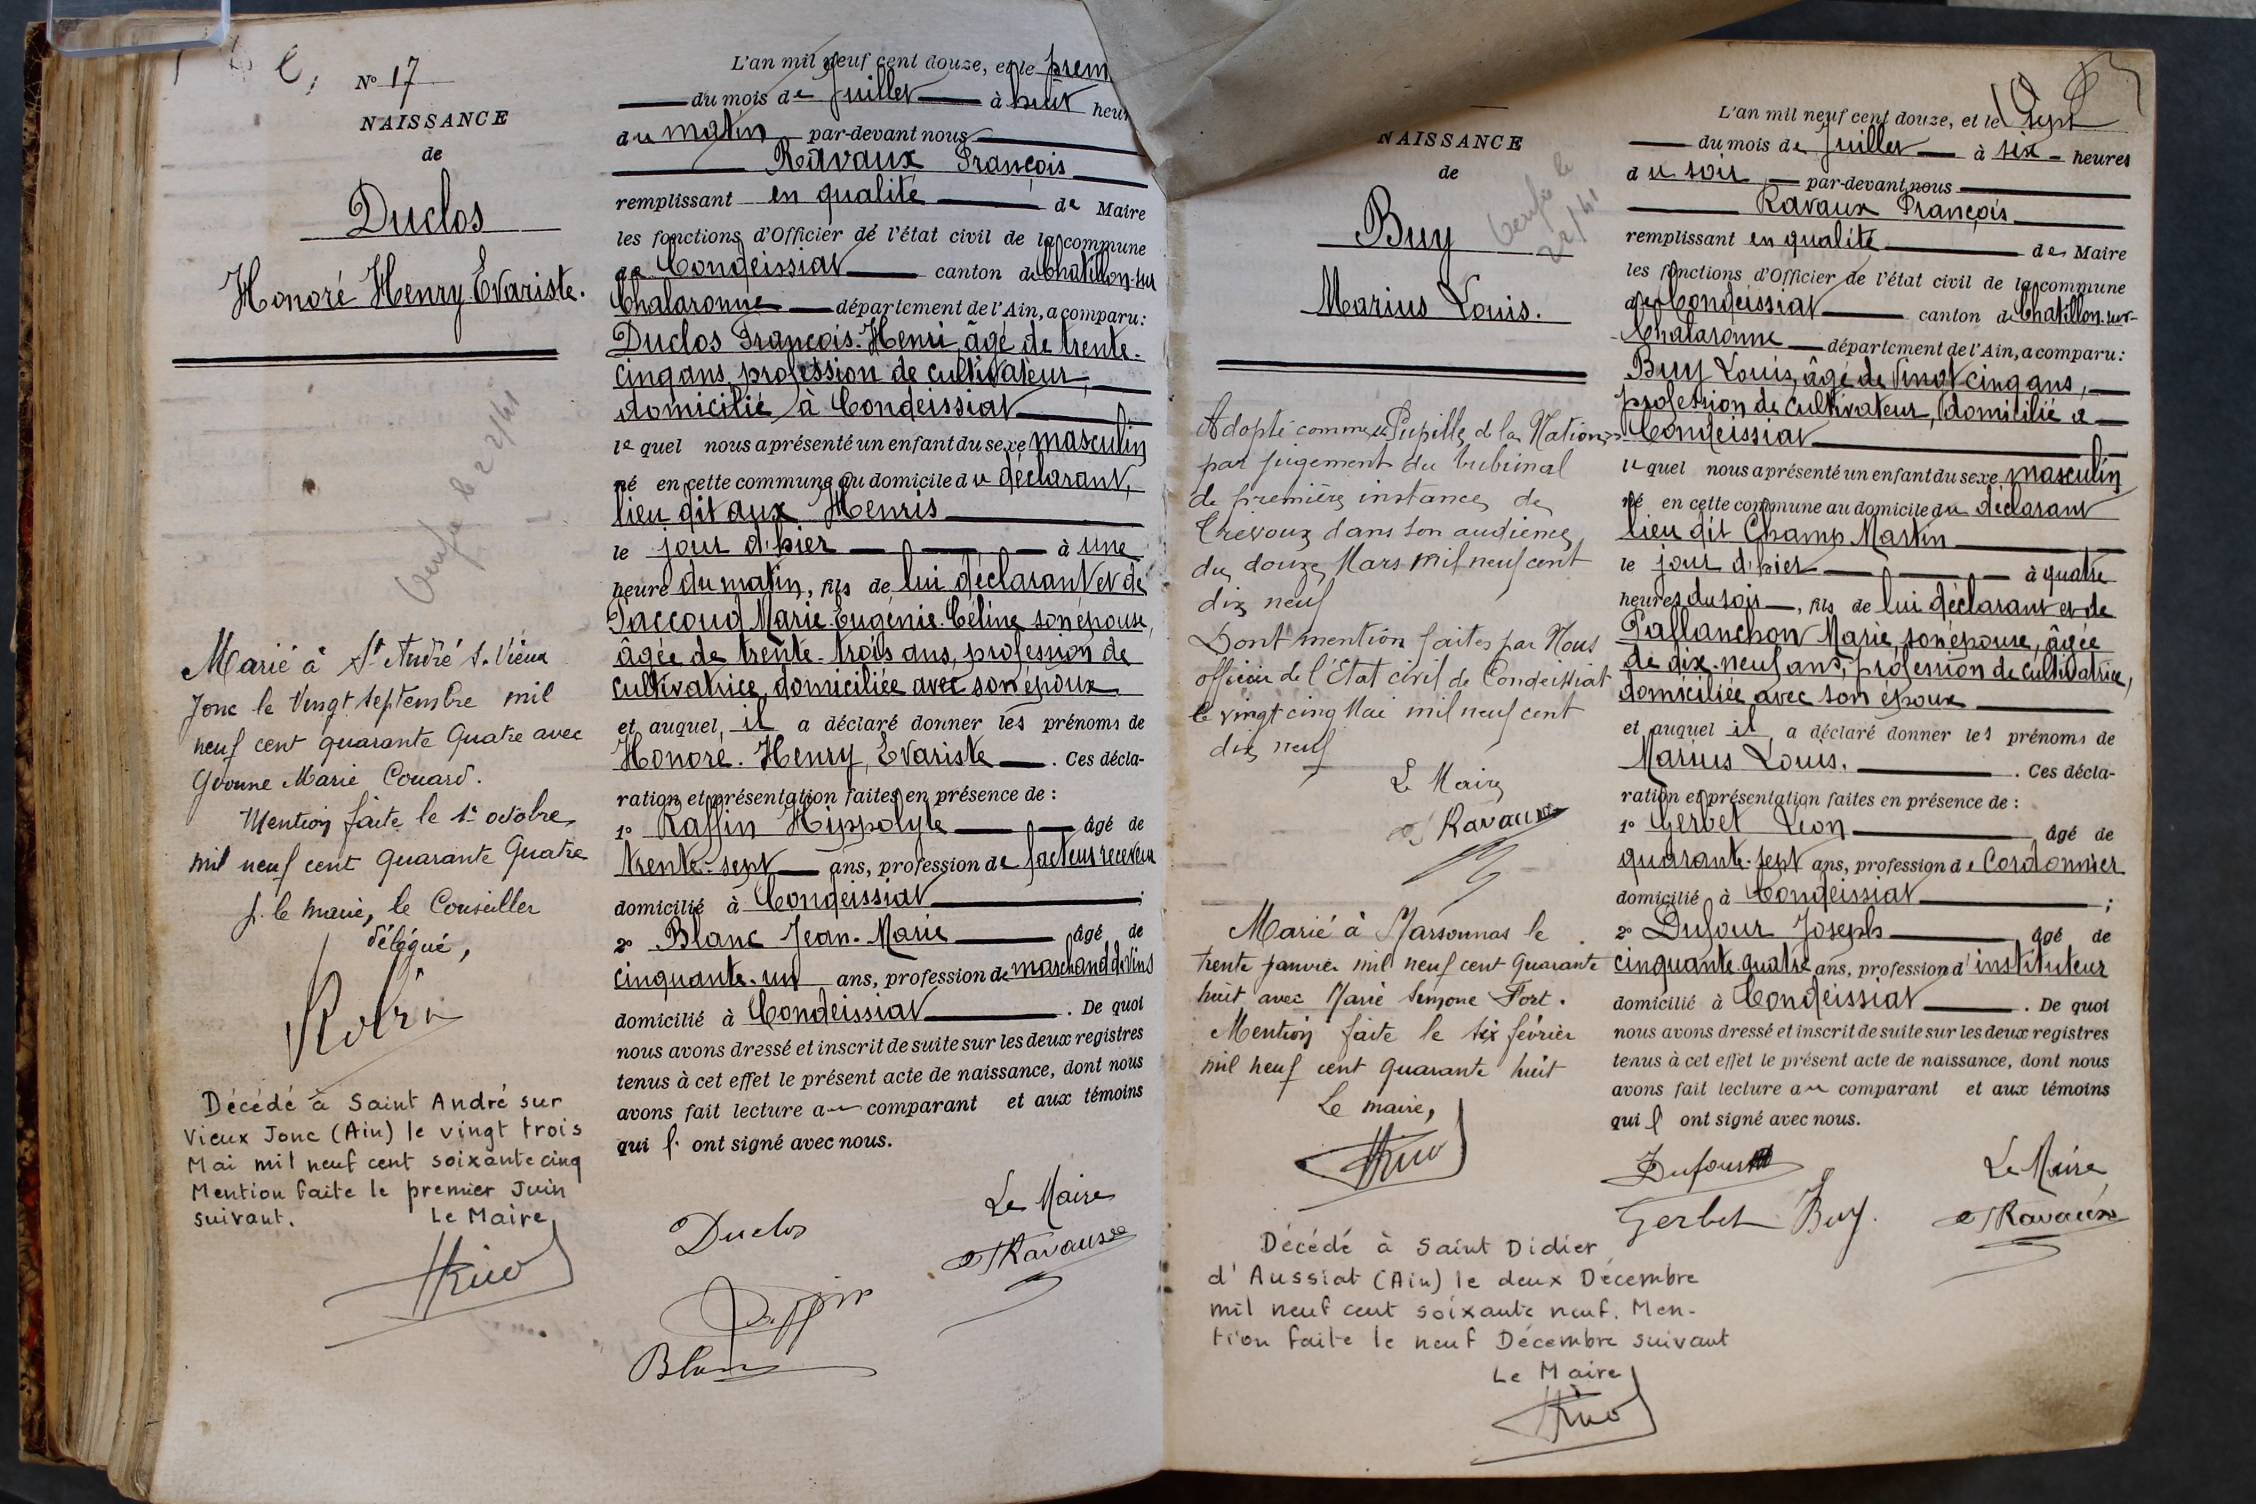 N° 17
NAISSANCE
de
Duclos
Honoré Henry Evariste.
Marié à St André s. Vieux
Jonc le Vingt septembre mil
neuf cent quarante Quatre avec
Yvonne Marie Couard.
Mention faite le 1er octobre
mil neuf cent quarante Quatre
p. le maire, le Conseiller
délégué,
Robin
Décédé à Saint André sur
Vieux Jonc (Ain) le vingt trois
Mai mil neuf cent soixante cinq
Mention faite le premier Juin
suivant. Le Maire,
L'an mil neuf cent douze, et le prem
du mois de Juillet à huit heur
du matin par-devant nous
Ravaux François
remplissant en qualité de Maire
les fonctions d'Officier de l'état civil de la commune
de Condeissiat canton de Chatillon-sur
Chalaronne département de l'Ain, a comparu :
Duclos François-Henri, âgé de trente-
cinq ans, profession de cultivateur,
domicilié à Condeissiat
lequel nous a présenté un enfant du sexe masculin
né en cette commune au domicile du déclarant,
lieu dit aux Henris
le jour d'hier à une
heure du matin, fils de lui déclarant et de
Paccoud Marie-Eugénie-Céline son épouse,
âgée de trente-trois ans, profession de
cultivatrice, domiciliée avec son époux
et auquel il a déclaré donner les prénoms de
Honoré. Henry, Evariste. Ces décla-
ration et présentation faites en présence de :
1° Raffin Hippolyte âgé de
trente-sept ans, profession de facteur receveur
domicilié à Condeissiat ;
2° Blanc Jean-Marie âgé de
cinquante-un ans, profession de marchand de vins
domicilié à Condeissiat. De quoi
nous avons dressé et inscrit de suite sur les deux registres
tenus à cet effet le présent acte de naissance, dont nous
avons fait lecture au comparant et aux témoins
qui l' ont signé avec nous.
Duclos
Le Maire
Ravaux
Raffin
Blanc
NAISSANCE
de
Buy
Marius Louis.
Adopté comme Pupille de la Nation
par jugement du tribunal
de première instance de
Trévoux dans son audience
du douze Mars mil neuf cent
dix neuf
Dont mention faites par Nous
officier de l'Etat civil de Condeissiat
le vingt cinq Mai mil neuf cent
dix neuf
Le Maire
Ravaux
Marié à Marsonnas le
trente janvier mil neuf cent Quarante
huit avec Marie Simone Fort.
Mention faite le six février
mil neuf cent quarante huit
Le maire,
Décédé à Saint Didier
d'Aussiat (Ain) le deux Décembre
mil neuf cent soixante neuf. Men-
tion faite le neuf Décembre suivant
Le Maire
L'an mil neuf cent douze, et le sept
du mois de Juillet à six heures
du soir par-devant nous
Ravaux François
remplissant en qualité de Maire
les fonctions d'Officier de l'état civil de la commune
de Condeissiat canton de Chatillon-sur-
Chalaronne département de l'Ain, a comparu :
Buy Louis, âgé de vingt cinq ans,
profession de cultivateur, domicilié à
Condeissiat
lequel nous a présenté un enfant du sexe masculin
né en cette commune au domicile du déclarant
lieu dit Champ Martin
le jour d'hier à quatre
heures du soir, fils de lui déclarant et de
Pallanchon Marie, son épouse, âgée
de dix-neuf ans, profession de cultivatrice,
domiciliée avec son époux
et auquel il a déclaré donner les prénoms de
Marius Louis. Ces décla-
ration et présentation faites en présence de :
1° Gerbet Léon âgé de
quarante-sept ans, profession de Cordonnier
domicilié à Condeissiat ;
2° Dufour Joseph âgé de
cinquante quatre ans, profession d'instituteur
domicilié à Condeissiat. De quoi
nous avons dressé et inscrit de suite sur les deux registres
tenus à cet effet le présent acte de naissance, dont nous
avons fait lecture au comparant et aux témoins
qui l' ont signé avec nous.
Dufour
Le Maire
Gerbet Buy.
Ravaux